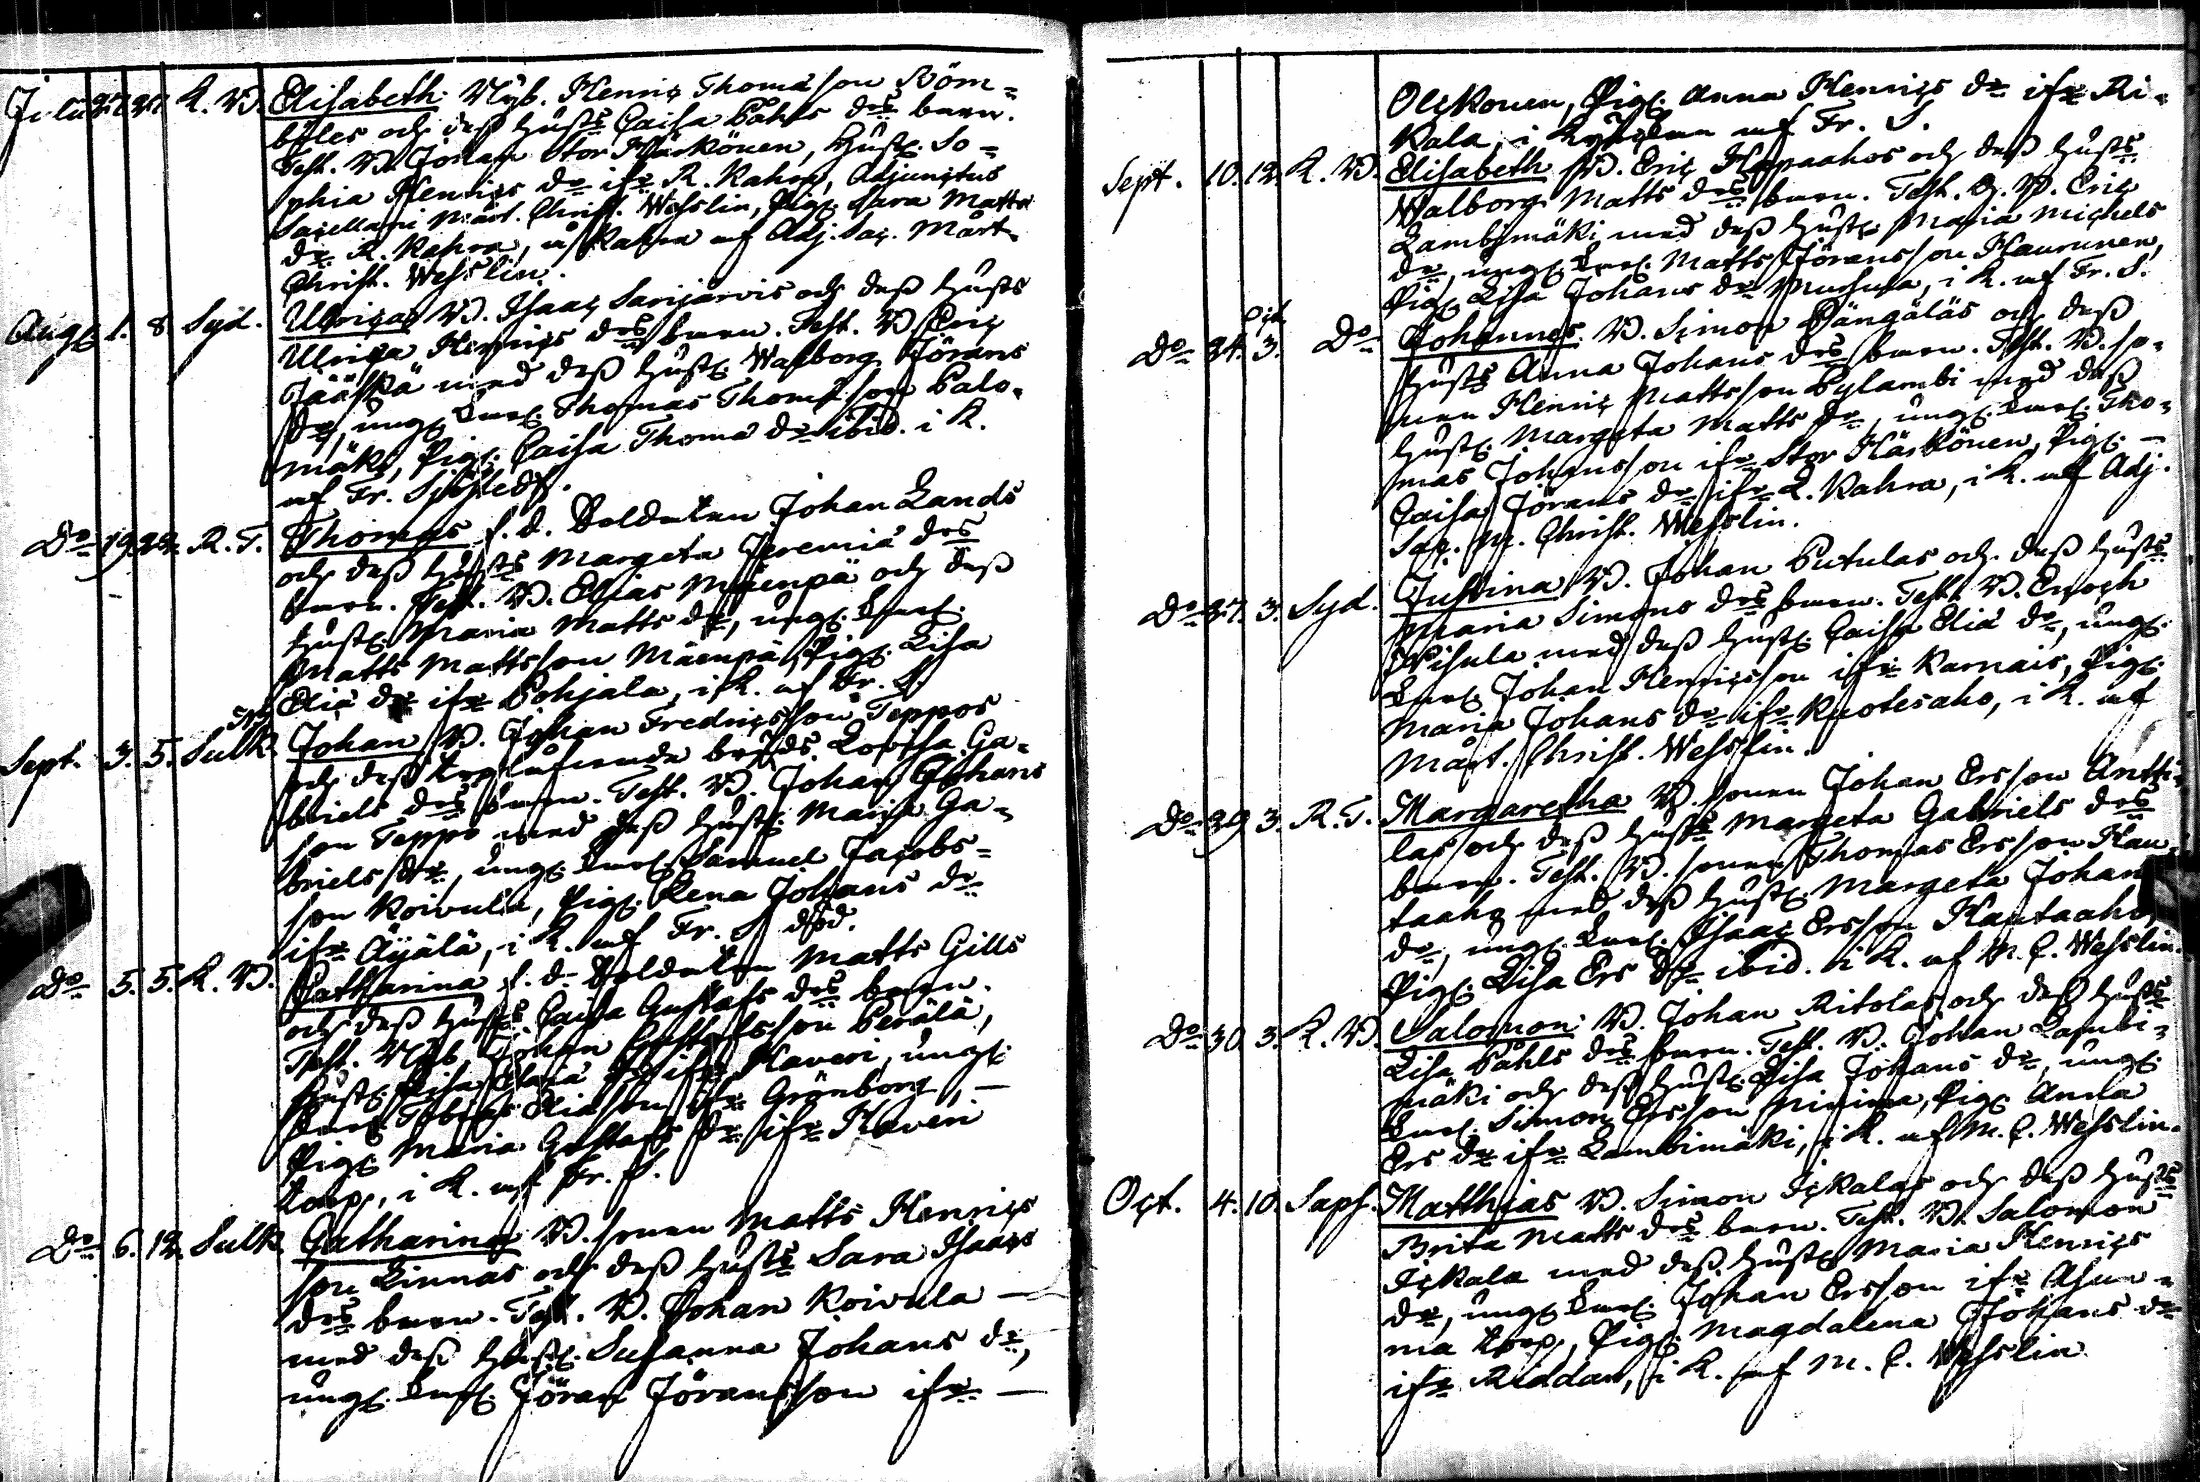 Julii 27. 27. K. By. Elisabeth. Nyb. Henric Thomasson Böm=
bfles och dess hustrs Caisa Påhls drs barn.
Test. B. Johan Stor Härkönen, hustr. So=
phia Henrics dr ifr. R. Kahra, Adjunctus
Sacellani Mårt. Christ. Wesslin, Pig. Sara Matts
dr. R. Kahra, i Kahra af Adj. Sac. Mårt.
Christ. Wesslin.
Aug. 1. 8. Syd. Ulrica, B. Isaac Sarijärvis och dess hustrs
Ulrica Henrics drs barn. Test. B. Eric
Jääskä med dess hustr. Walborg Jörans
dr, ung. Karl. Thomas Thomasson Palo=
mäki, Pig. Caisa Thoma dr ibid. i K.
af Fr.
Do 19. 22. R. T. Thomas, f. d. Soldaten Johan Lands
och dess hustrs Margeta Jeremiä drs
barn. Test. B. Elias Mäenpä och dess
hustr. Maria Matts dr, ung. Karl.
Matts Mattsson Mäenpä, Pig. Lisa
Eliä dr ifr. Pohjala, i K. af Fr. S.
Sept. 3. 5. Sulk. Johan, B. Johan Fredricsson Teppos
och dess
Lovisa Ga=
briels drs barn. Test. B. Johan Johans
son Teppo med dess hustr. Maria Ga=
briels dr, ung. Karl. Samuel Jacobs=
son Koivula, Pig. Lena Johans dr
ifr. Äijälä, i K. af Fr. S. död.
Do 5. 5. K. By. Catharina, f. d. Soldaten Matts Gills
och dess hustrs Caisa Gustafs drs barn.
Test. Nyb. Johan Gustafsson Perälä,
hustr. Lisa Eliä dr ifr. Haveri, ung.
Karl. Tobias Eliäson ifr. Grönborg, —
Pig. Maria Gustafs dr ifr. Haveri
torp., i K. af Fr. S.
Do 6. 12. Sulk. Catharina, B. sonen Matts Henrics
son Linnas och dess hustrs Sara Isaacs
drs barn. Test. B. Johan Koivula —
med dess hustr. Susanna Johans dr,
ung. Karl. Jöran Jöransson ifr. —
Olckonen, Pig. Anna Henrics dr ifr. Ri=
kala, i Kyrckan af Fr. S.
Sept. 10. 12. K. By. Elisabeth, B. Eric Hapaahos och dess hustrs
Walborg Matts drs barn. Test. B. Eric
Lambimäki med dess hustr. Maria Michels
dr, ung. Karl. Matts Jöransson Haurunen,
Pig. Lisa Johans dr, i K. af Fr. S.
Do 24. Oct. 3. Do Johannes, B. Simon Pängäläs och dess
hustrs Anna Johans drs barn. Test. B. so=
nen Henric Mattsson Pylambi med dess
hustr. Margeta Matts dr, ung. Karl. Tho=
mas Johansson ifr. Stor Härkönen, Pig. —
Caisa Jörans dr ifr. L. Kahra, i K. af Adj.
Sac. M. Christ. Wesslin.
Do 27. 3. Syd. Justina, B. Johan Putulas och dess hustrs
Maria Simons drs barn. Test. B. Enoch
Pisula med dess hustr. Caisa Eliä dr, ung.
Karl. Johan Henricsson ifr. Karnais, Pig.
Maria Johans dr ifr. Kuotesaho, i K. af
Mårt. Christ. Wesslin.
Do 29. 3. R. T. Margaretha, B. sonen Johan Ersson Antti=
las och dess hustrs Margeta Gabriels drs
barn. Test. B. sonen Thomas Ersson Hau=
taaho med dess hustr. Margeta Johans
dr, ung. Karl. Isaac Ersson Hautaaho,
Pig. Lisa Ers dr ibid. i K. af M. C. Wesslin.
Do 30. 3. K. By. Salomon, B. Johan Ritolas och dess hustrs
Lisa Påhls drs barn. Test. B. Johan Lambi=
mäki och dess hustr. Lisa Johans dr, ung.
Karl. Simon Ersson Pig. Anna
Ers dr ifr. Lambimäki, i K. af M. C. Wesslin.
Oct. 4. 10. Saph. Matthias, B. Simon Ickalas och dess hustrs
Brita Matts drs barn. Test. B. Salomon
Ickala med dess hustr. Maria Henrics
dr, ung. Karl. Johan Ersson ifr. Asun=
ma torp, Pig. Magdalena Johans dr
ifr. Riddar, i K. af M. C. Wesslin